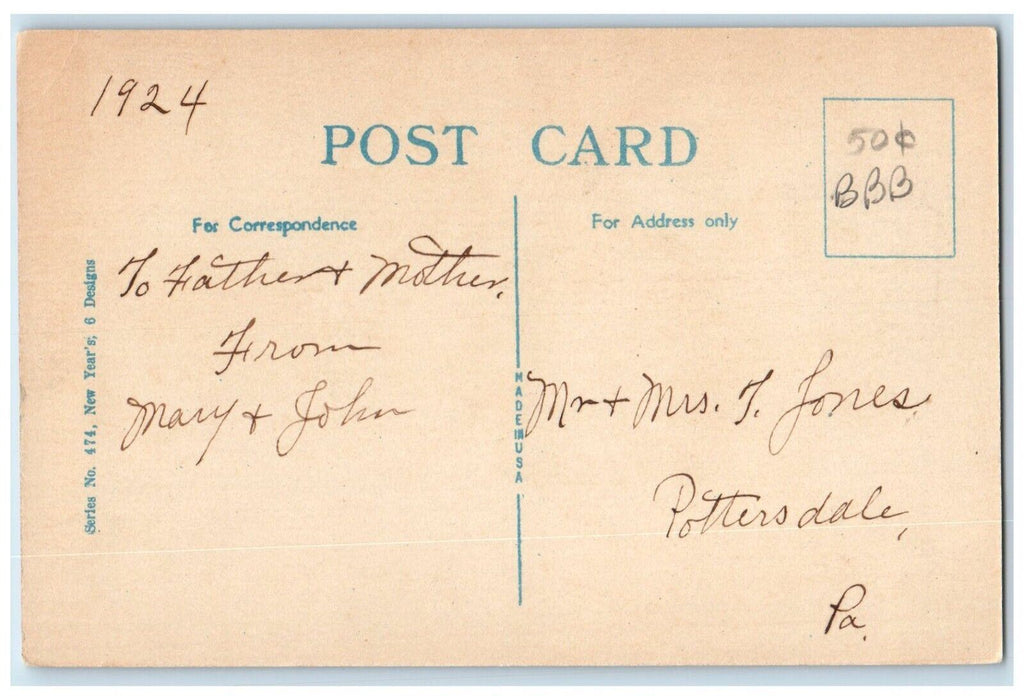 1924
POST CARD
50¢
BBB
For Correspondence
For Address only
To Father & Mother.
From
Mary & John
Series No. 474, New Year's; 6 Designs
MADE IN USA
Mr & Mrs. T. Jones.
Pottersdale,
Pa.